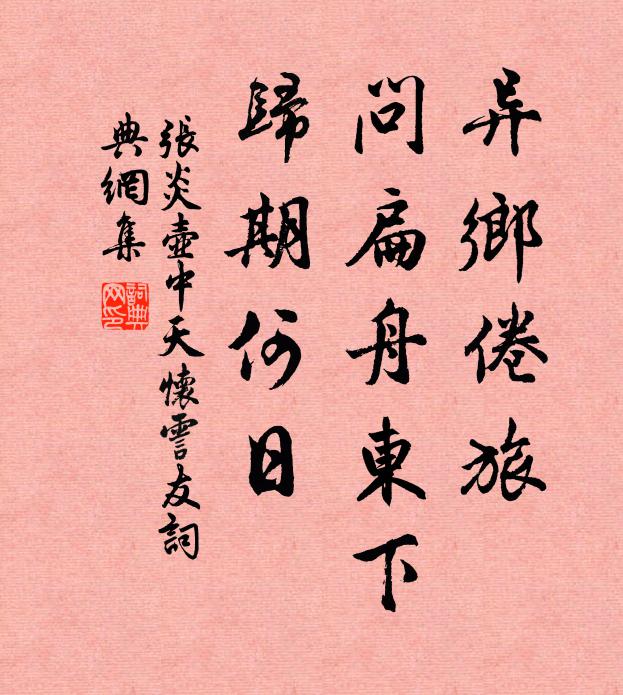 异鄉倦旅
問扁舟東下
歸期何日
張炎壺中天懷霅友詞
典網集
詞典網印